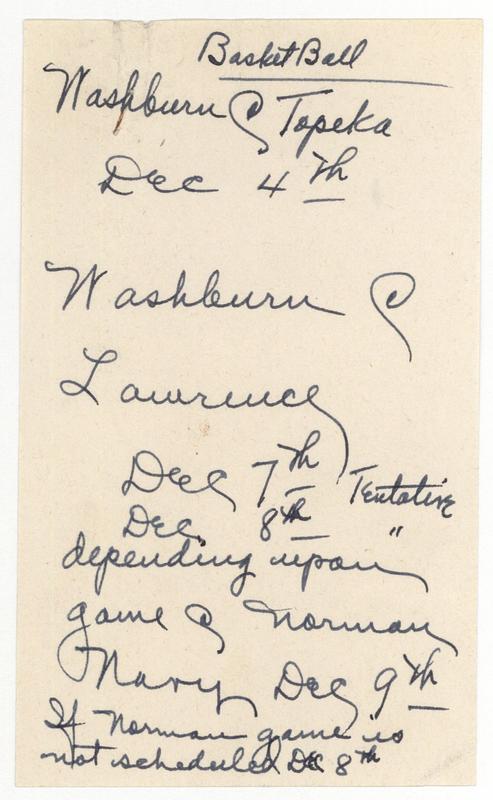 Basket Ball
Washburn @ Topeka
Dec 4th
Washburn @
Lawrence
Dec 7th Tentative
Dec. 8th "
depending upon
game @ Norman
Navy Dec 9th
If Norman game is
not scheduled Dec 8th